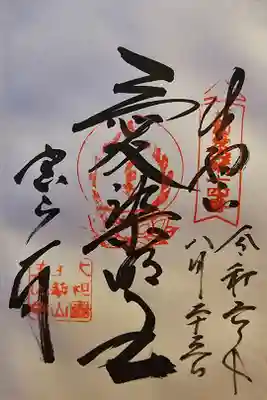 生駒山
愛染明王
宝山寺
令和六年
八月二十三日